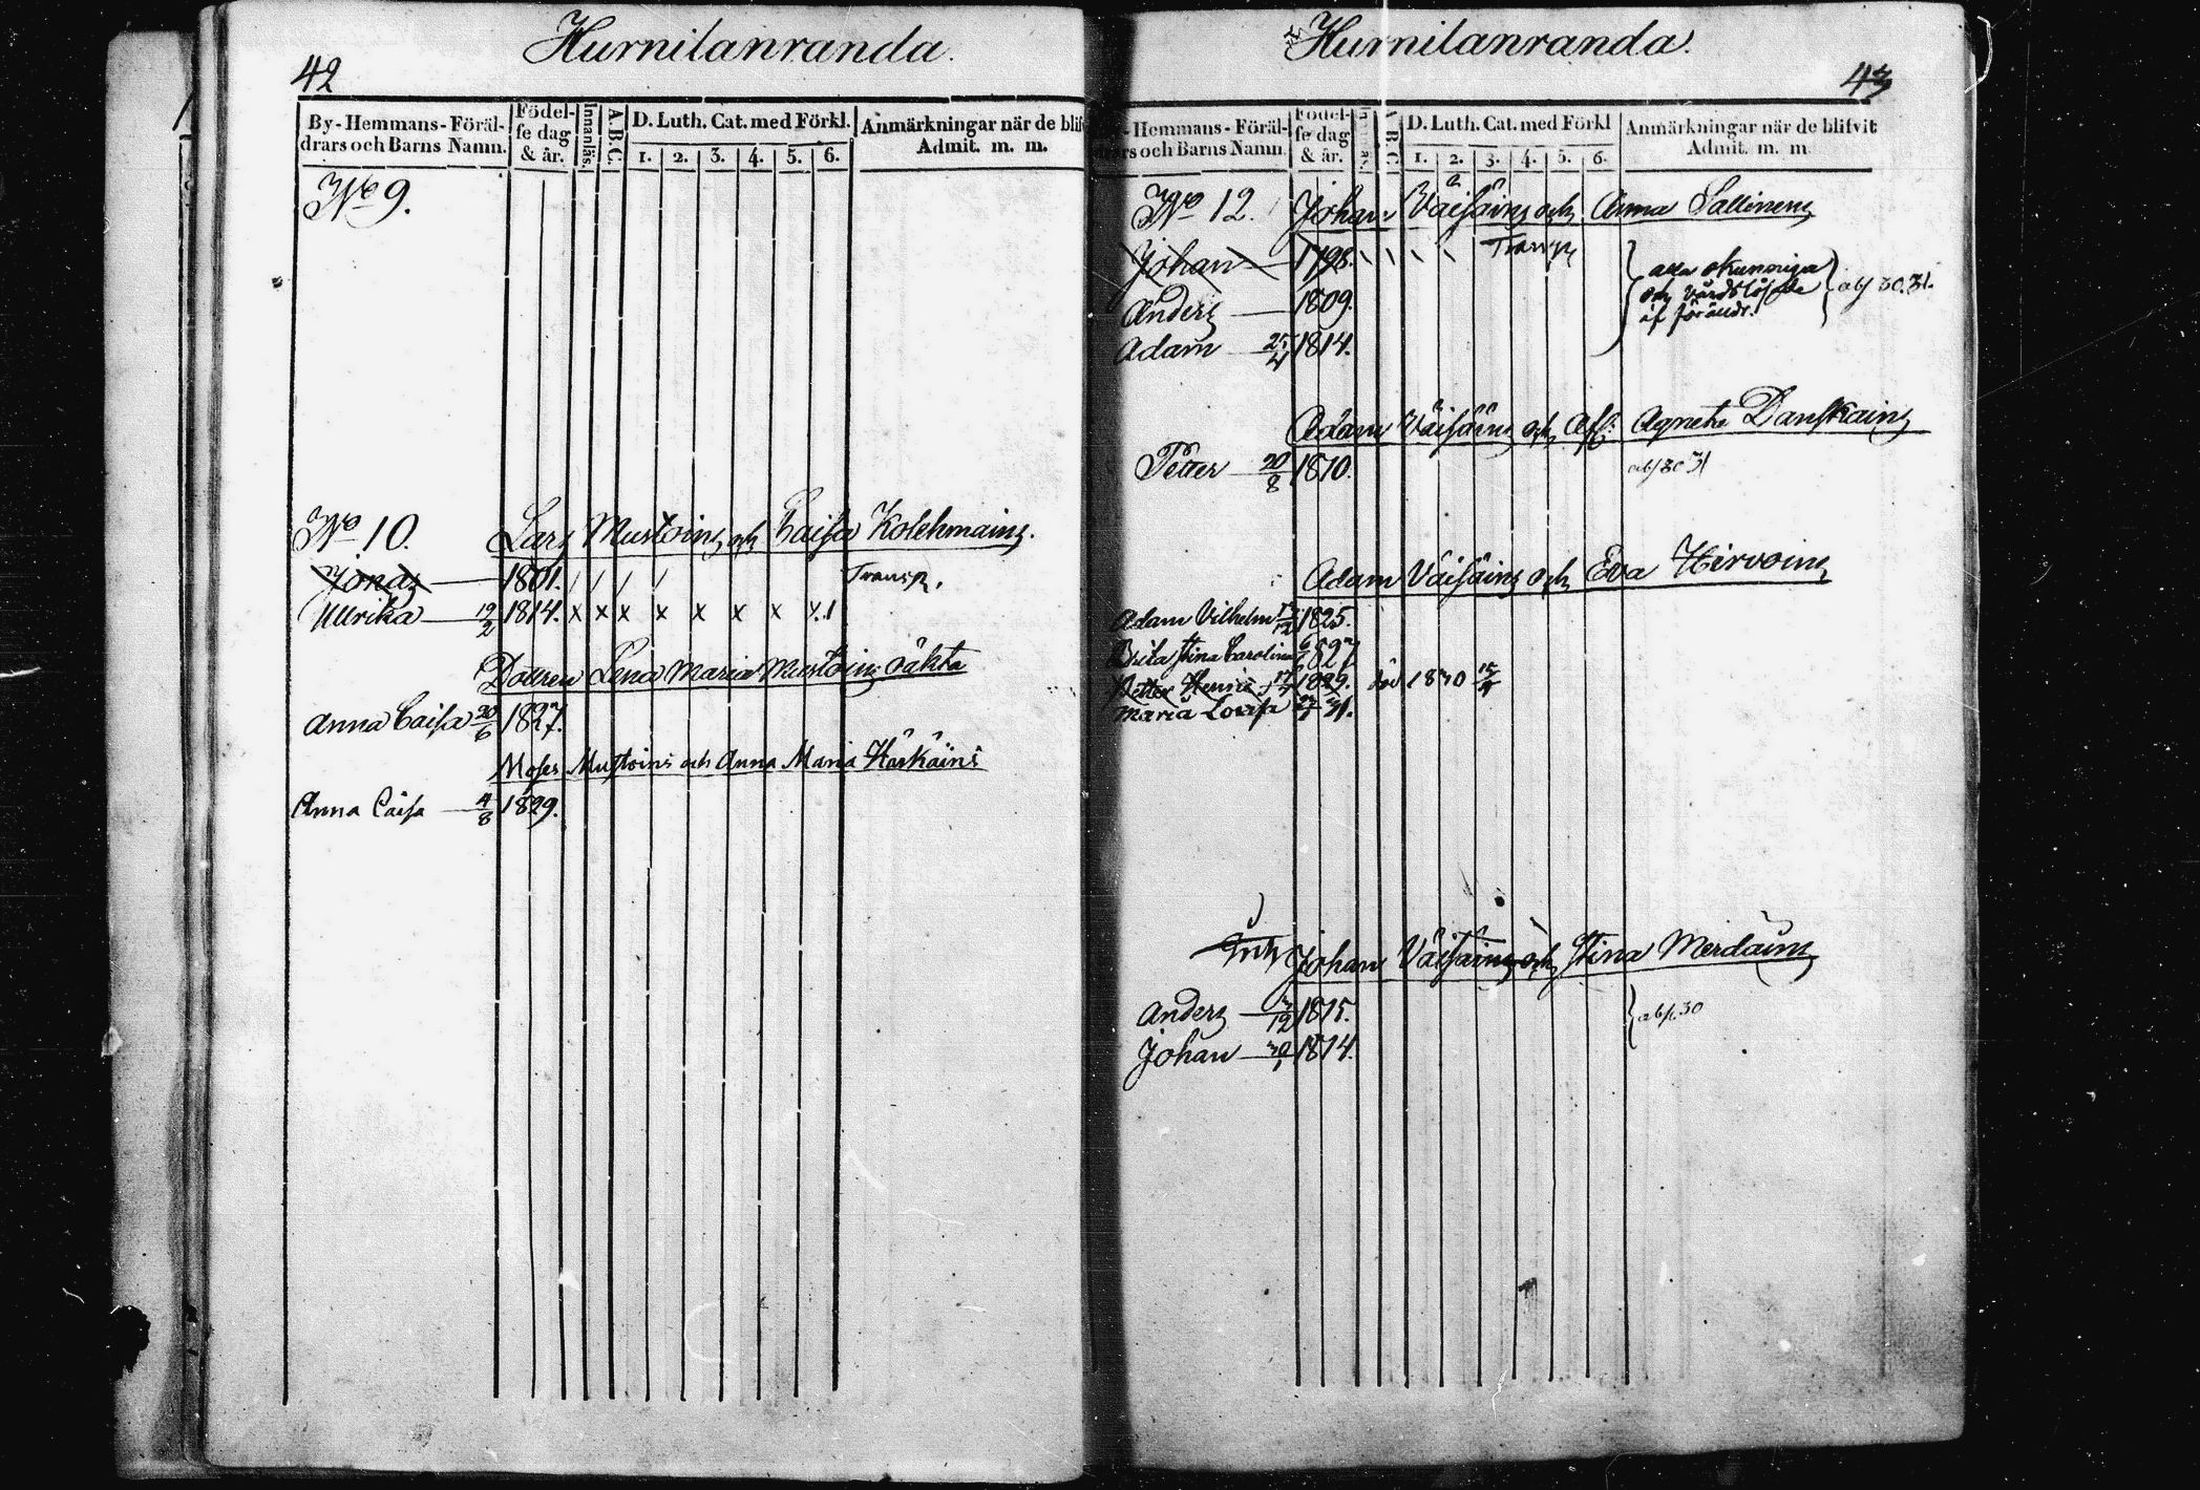 Hurnilanranda.
42
By-Hemmans-Föräl-
drars och Barns Namn.
Födel-
se dag
& år.
Innanläs.
A.B.C.
D. Luth. Cat. med Förkl.
1. 2. 3. 4. 5. 6.
Anmärkningar när de blif
Admit. m. m.
No 9.
No 10. Lars Mustoins och Caisa Kolehmains.
Jonas 1801. / / / / Transp.
Ullrika 19/2 1814. x x x x x x x x.1
Dottren Lena Maria Mustoins oäkta
Anna Caisa 20/6 1827.
Moses Mustoins och Anna Maria Härkäins
Anna Caisa 4/8 1829.
Hurnilanranda.
43
-Hemmans-Föräl-
drars och Barns Namn
Födel-
se dag
& år.
B C
D. Luth. Cat. med Förkl
1. 2. 3. 4. 5. 6.
Anmärkningar när de blifvit
Admit. m. m
No 12. Johan Väisäins och Anna Sallinens
Johan 1798. \ \ \ \ Transp
Anders 1809.
Adam 25/4 1814.
alla okunniga
och vårdslösade
af föräldr.
abs 30.31.
Adam Väisäins och Aff: Agneta Danskains
Petter 20/8 1810. abs 30 31
Adam Väisäins och Eva Hirvoins
Adam Vilhelm 1825.
Brita Stina Carolina 1827
Petter Henric 17/7 1829. död 1830 15/4
Maria Lovisa 31.
Inh Johan Väisäins och Stina
Anders 3/12 1815.
Johan 1814.
abs. 30